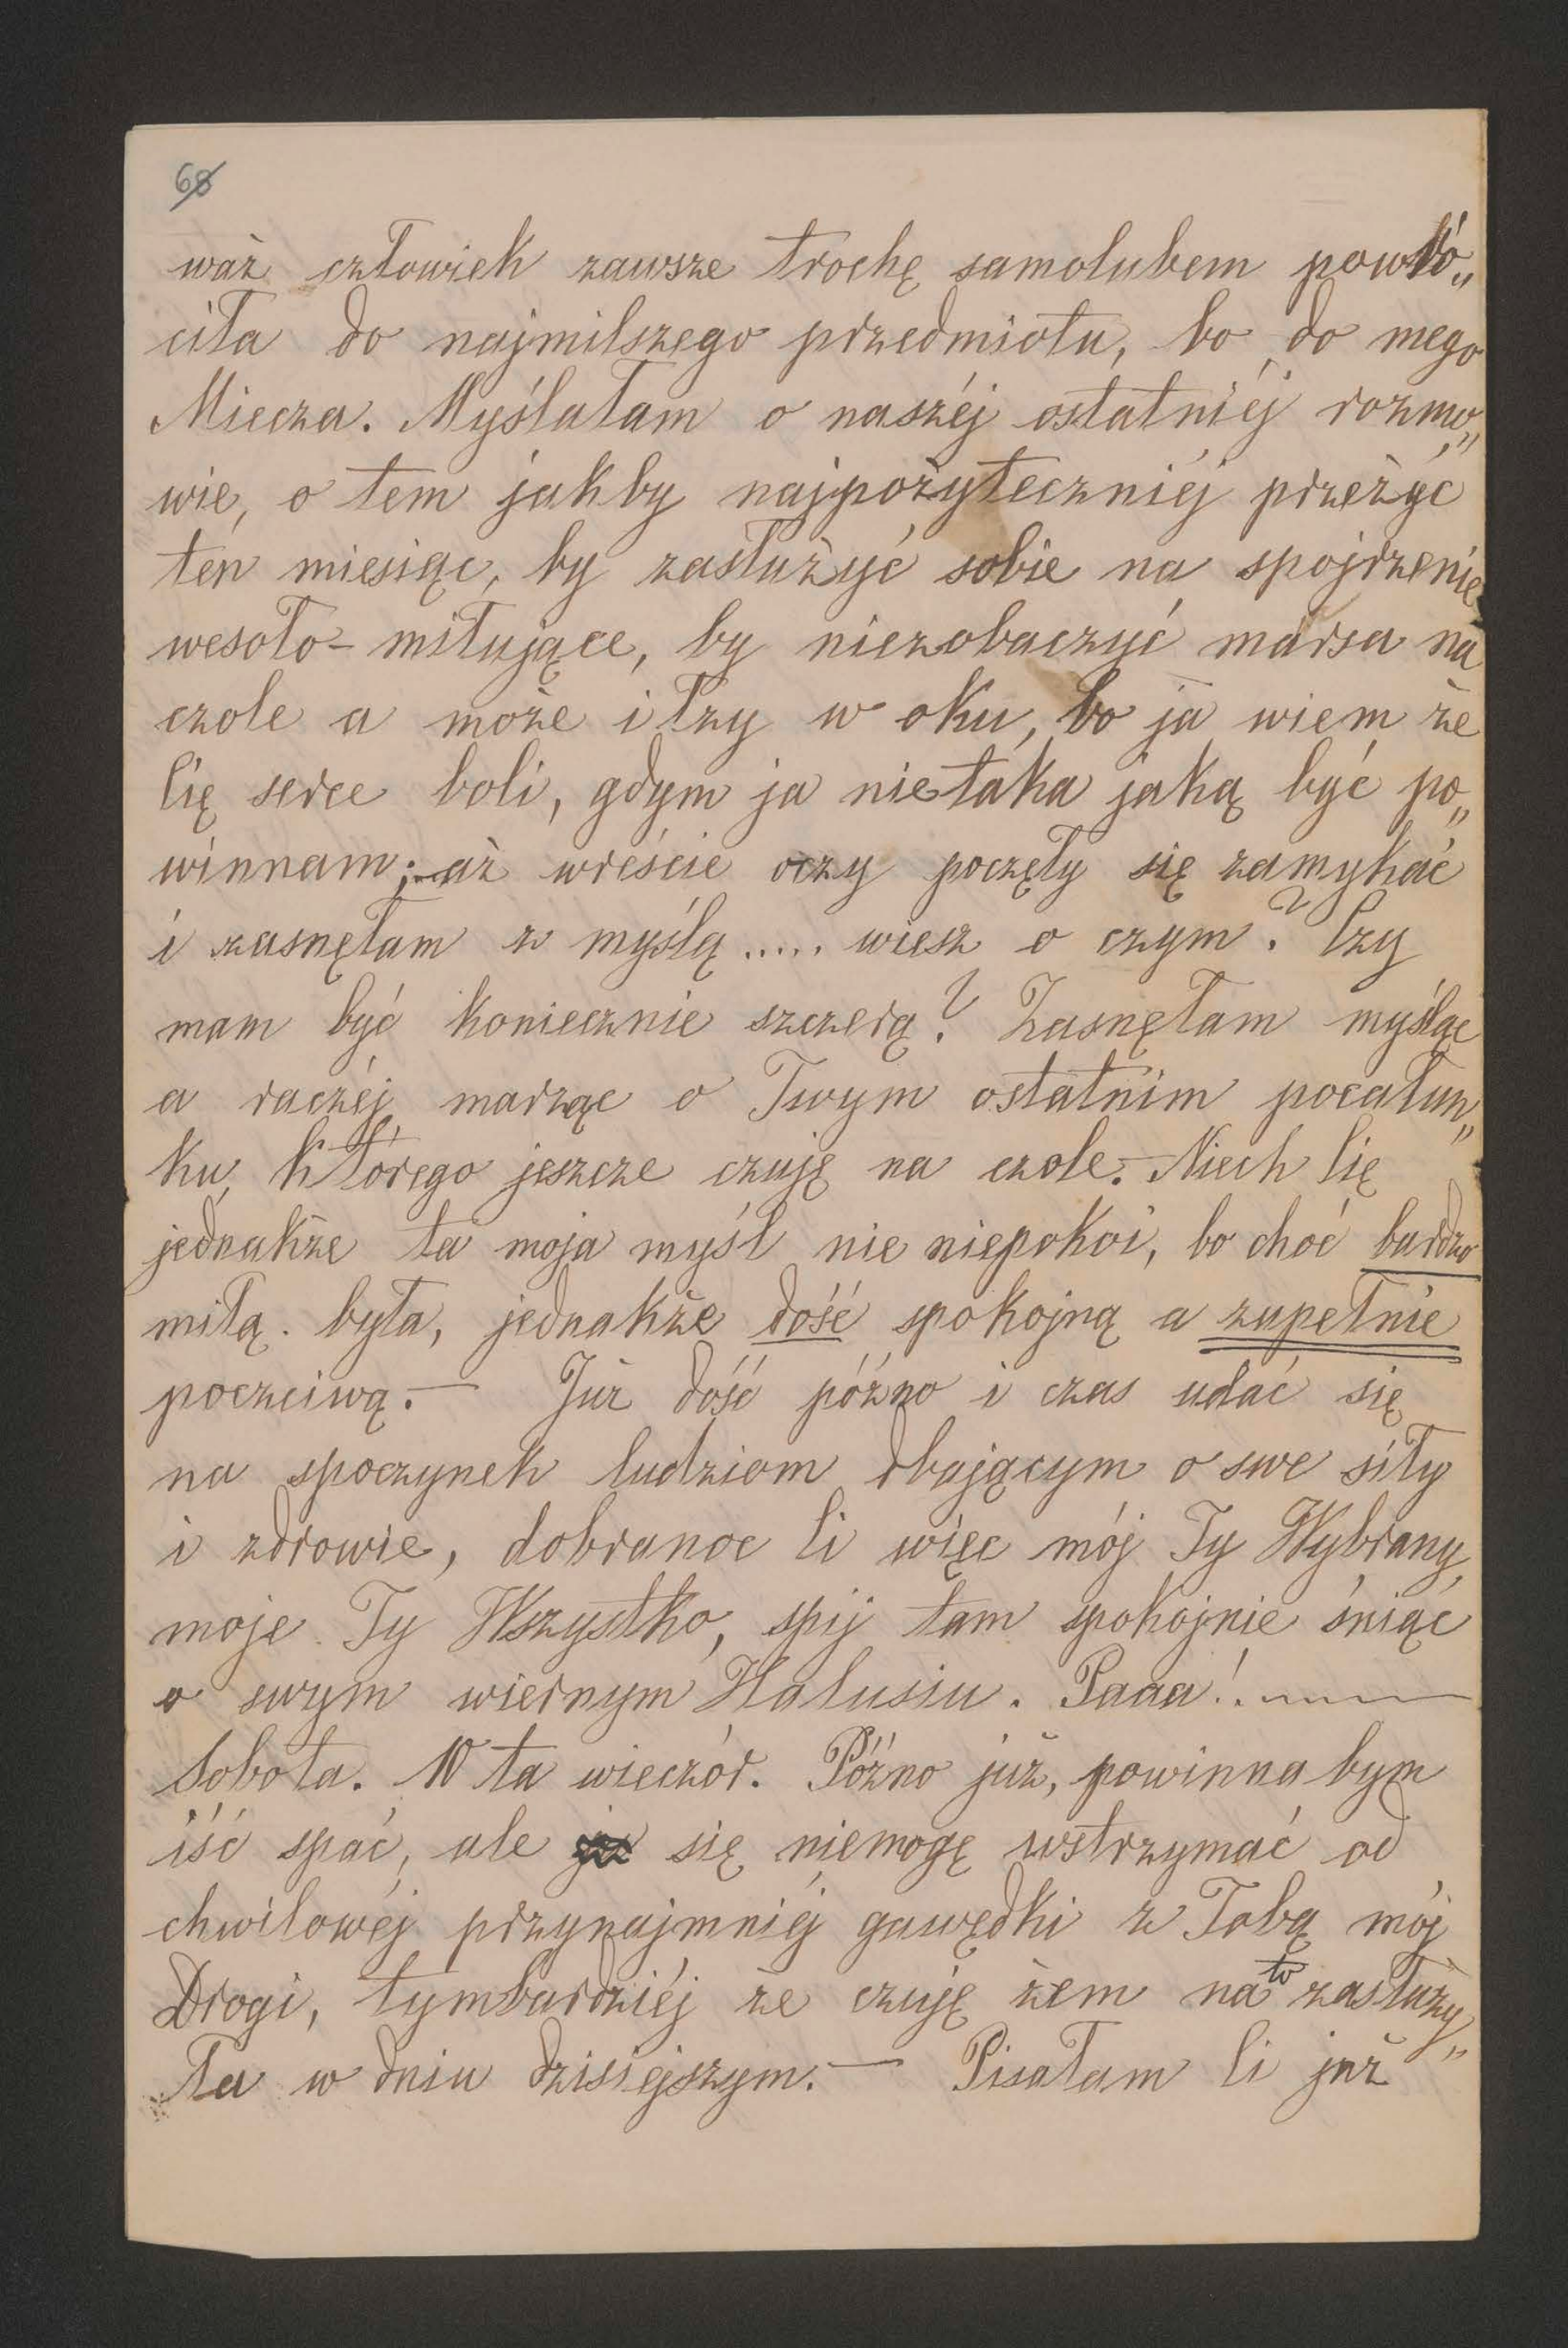 68
waż człowiek zawsze trochę samolubem powró„
ciła do najmilszego przedmiotu, bo do mego
Miecza. Myślałam o naszéj ostatniéj rozmo„
wie, o tem jakby najpożyteczniéj przeżyć
ten miesiąc, by zasłużyć sobie na spojrzenie
wesoło-miłujące, by niezobaczyć marsa na
czole a może i łzy w oku, bo ja wiem że
Cię serce boli, gdym ja nie taka jaką być po„
winnam; aż wreście oczy poczęły się zamykać
i zasnęłam z myślą ..... wiesz o czym? Czy
mam być koniecznie szczerą? Zasnęłam myśląc
a raczéj marząc o Twym ostatnim pocałun„
ku, którego jeszcze czuję na czole.— Niech Cię
jednakże ta moja myśl nie niepokoi, bo choć bardzo
miłą była, jednakże dość spokojną a zupełnie
poczciwą.— Już dość późno i czas udać się
na spoczynek ludziom dbającym o swe siły
i zdrowie, dobranoc Ci więc mój Ty Wybrany,
moje Ty Wszystko, spij tam spokojnie śniąc
o swym wiernym Halusiu. Paaa!.
Sobota. 10 ta wieczór. Późno już, powinna bym
iść spać, ale ja się niemogę wstrzymać od
chwilowéj przynajmniéj gawędki z Tobą mój
Drogi, tymbardziéj że czuję żem na to zasłuży„
ła w dniu dzisiejszym.— Pisałam Ci już